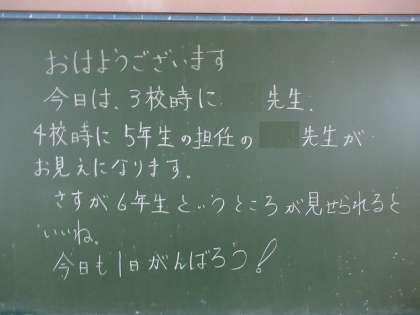 おはようございます
今日は、3校時に 先生.
4校時に 5年生の担任の 先生が
お見えになります.
さすが6年生というところが見せられると
いいね.
今日も1日がんばろう!